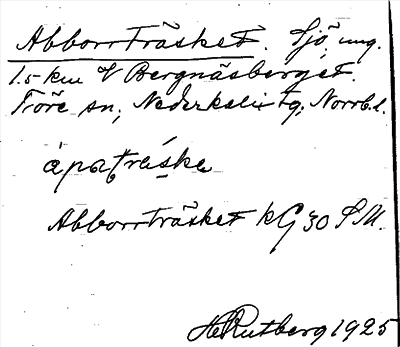 Abborrträsket. Sjö, ung.
1.5 km V Bergnäsberget.
Töre sn; Nederkalix tg; Norrb. l.
Abborrträsket KG 30 SM.
H Rutberg 1925